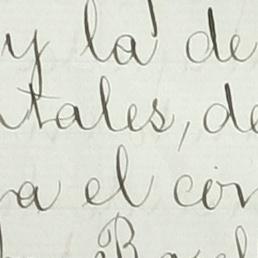 y la de
tales, de
ra el con